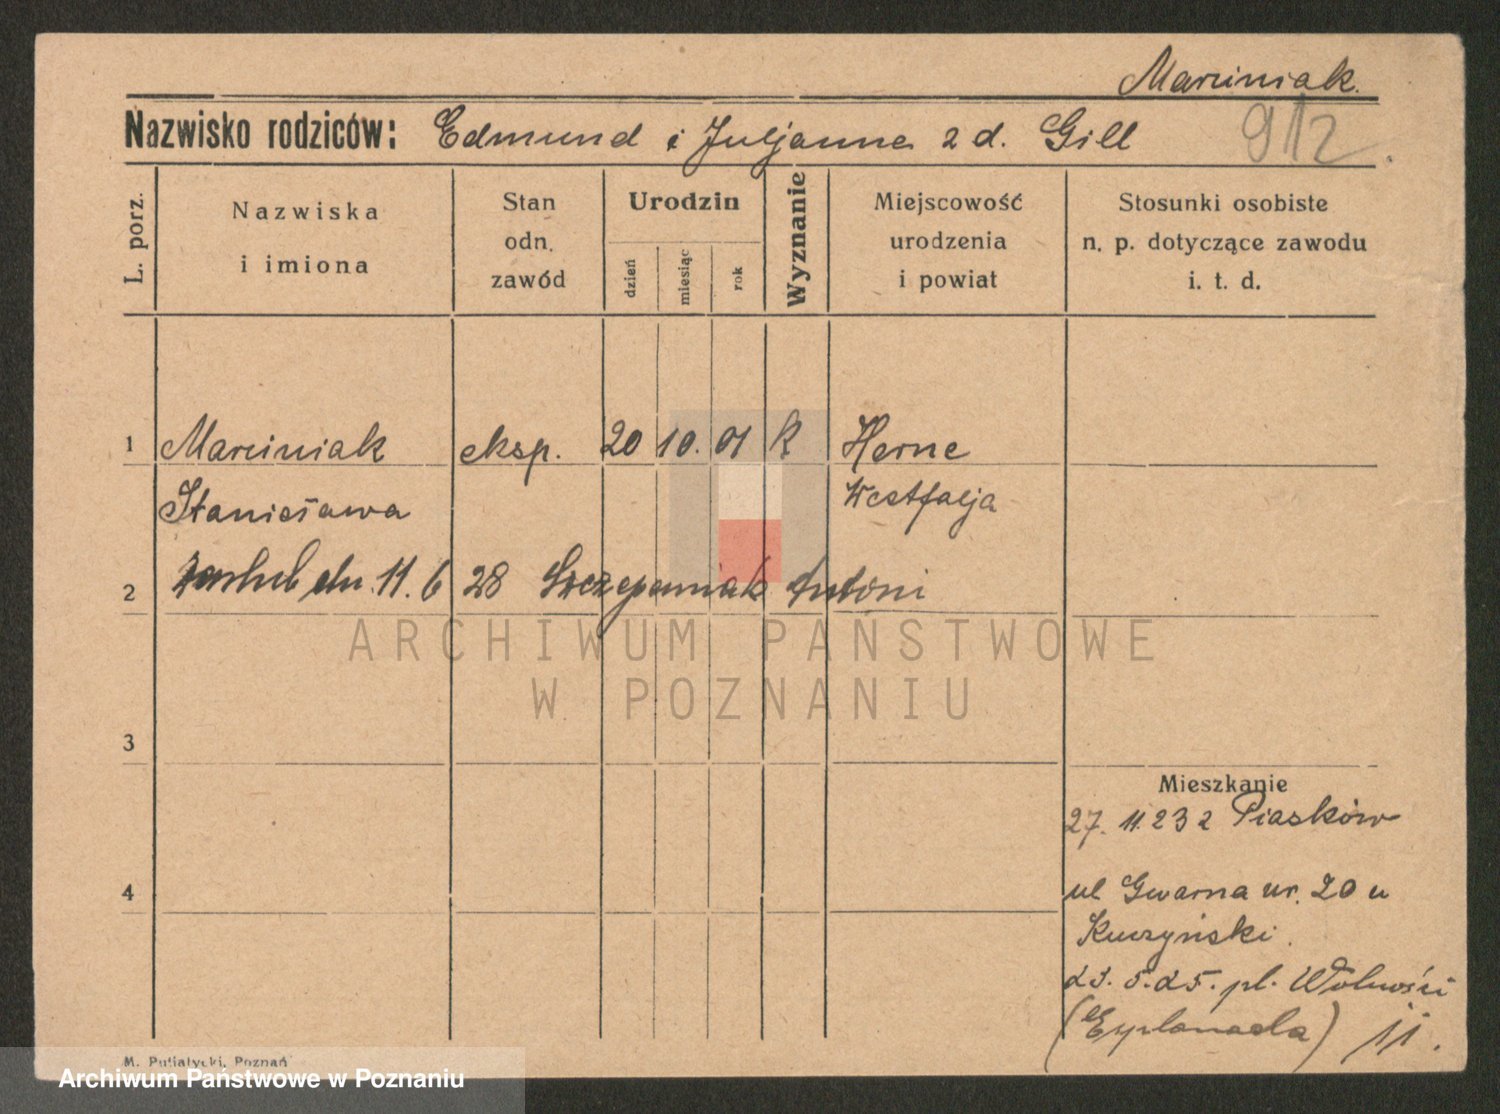 Marciniak.
Nazwisko rodziców: Edmund i Juljanna z d. Gill
912
L. porz.
Nazwiska
i imiona
Stan
odn.
zawód
Urodzin
dzień
miesiąc
rok
Wyznanie
Miejscowość
urodzenia
i powiat
Stosunki osobiste
n. p. dotyczące zawodu
i. t. d.
1 Marciniak eksp. 20 10. 01 k Herne
Stanisława Westfalja
2 zaślub dn. 11. 6 28 Szczepaniak Antoni
ARCHIWUM PAŃSTWOWE
W POZNANIU
3
Mieszkanie
27. 11. 23 z Piasków
4
ul Gwarna nr. 20 u
Kuczyński.
23. 5. 25. pl. Wolności
(Esplanada) 11.
M. Putiatycki, Poznań
Archiwum Państwowe w Poznaniu